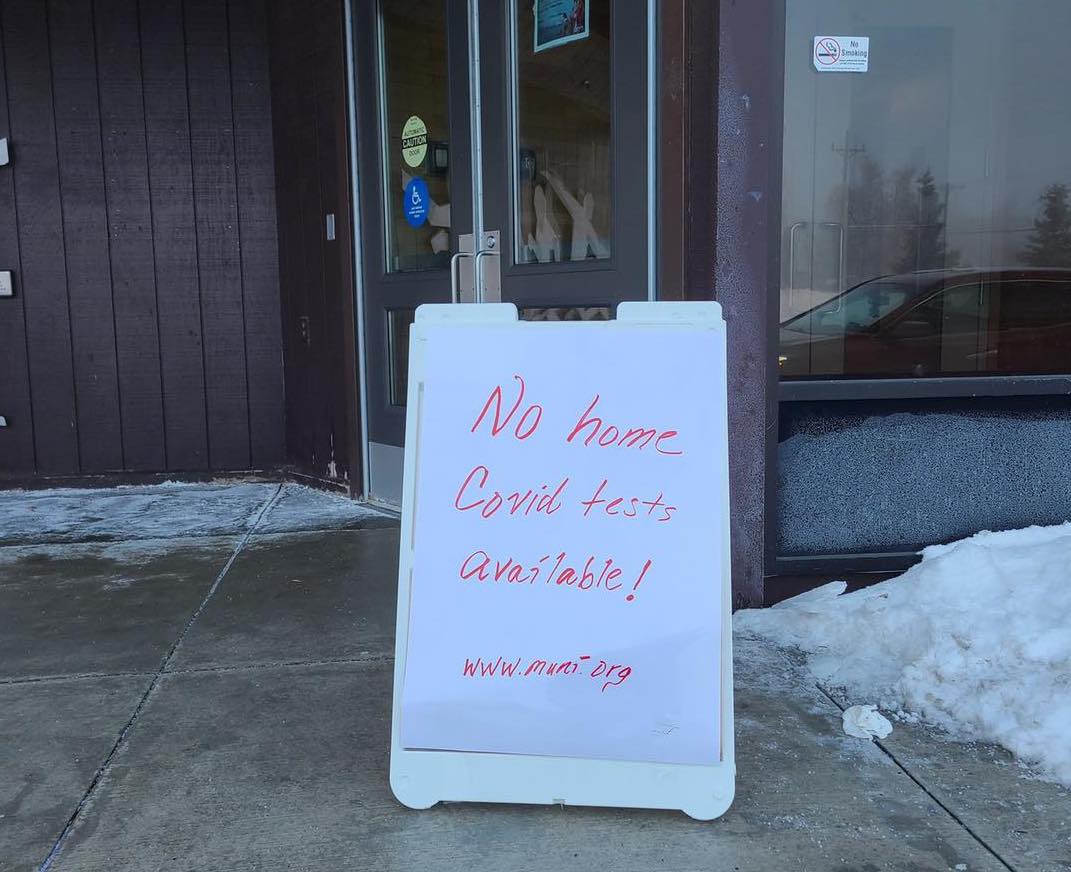 No
Smoking
AUTOMATIC
CAUTION
DOOR
No home
Covid tests
available!
www.muni.org